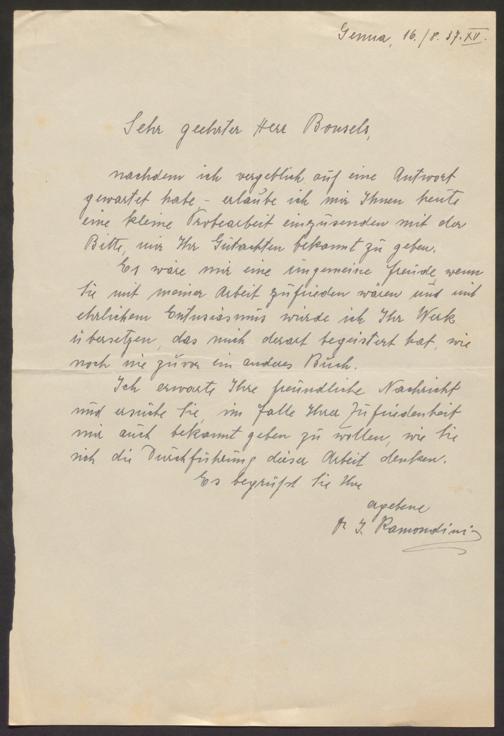 Genua, 16./8. 37. XV.
Sehr geehrter Herr Bonsels,
nachdem ich vergeblich auf eine Antwort
gewartet habe - erlaube ich mir Ihnen heute
eine kleine Probearbeit einzusenden mit der
Bitte, mir Ihr Gutachten bekannt zu geben.
Es wäre mir eine ungemeine Freude, wenn
Sie mit meiner Arbeit zufrieden wären und mit
ehrlichem Entusiasmus würde ich Ihr Werk
übersetzen, das mich derart begeistert hat, wie
noch nie zuvor ein anderes Buch.
Ich erwarte Ihre freundliche Nachricht
und ersuche Sie, im Falle Ihrer Zufriedenheit
mir auch bekannt geben zu wollen, wie Sie
sich die Durchführung dieser Arbeit denken.
Es begrüßt Sie Ihre
ergebene
I. Ramondini